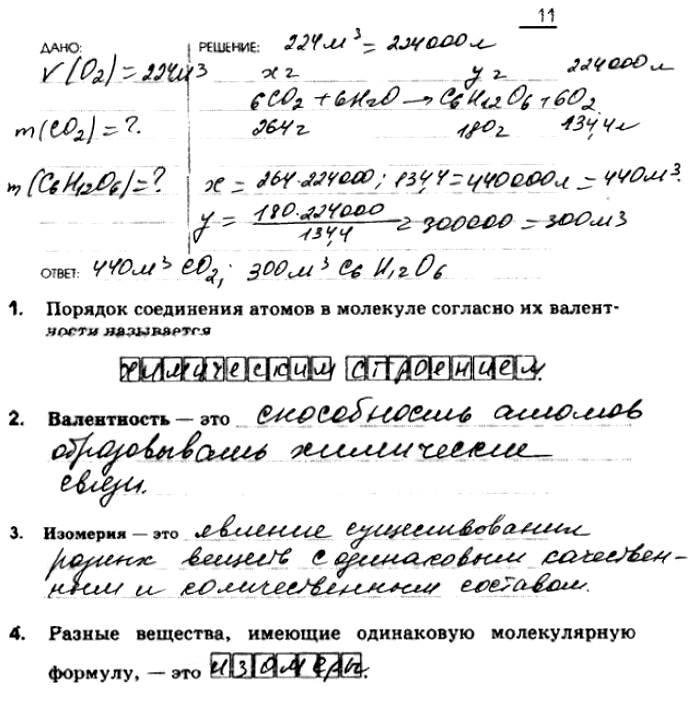 11
ДАНО: РЕШЕНИЕ: 224м³ = 224000л
V(O₂) = 224м³ x г y г 224000л
6CO₂ + 6H₂O → C₆H₁₂O₆ + 6O₂
m(CO₂) = ?. 264г 180г 134,4л
m(C₆H₁₂O₆) = ? x = 264·224000 ; 134,4 = 440000л = 440м³.
y = 180·224000 / 134,4 = 300000 = 300м³
ОТВЕТ: 440м³ CO₂; 300м³ C₆H₁₂O₆
1. Порядок соединения атомов в молекуле согласно их валент-
ности называется
химическим строением.
2. Валентность — это способность атомов
образовывать химические
связи.
3. Изомерия — это явление существования
разных веществ с одинаковым качествен-
ным и количественным составом.
4. Разные вещества, имеющие одинаковую молекулярную
формулу, — это изомеры.